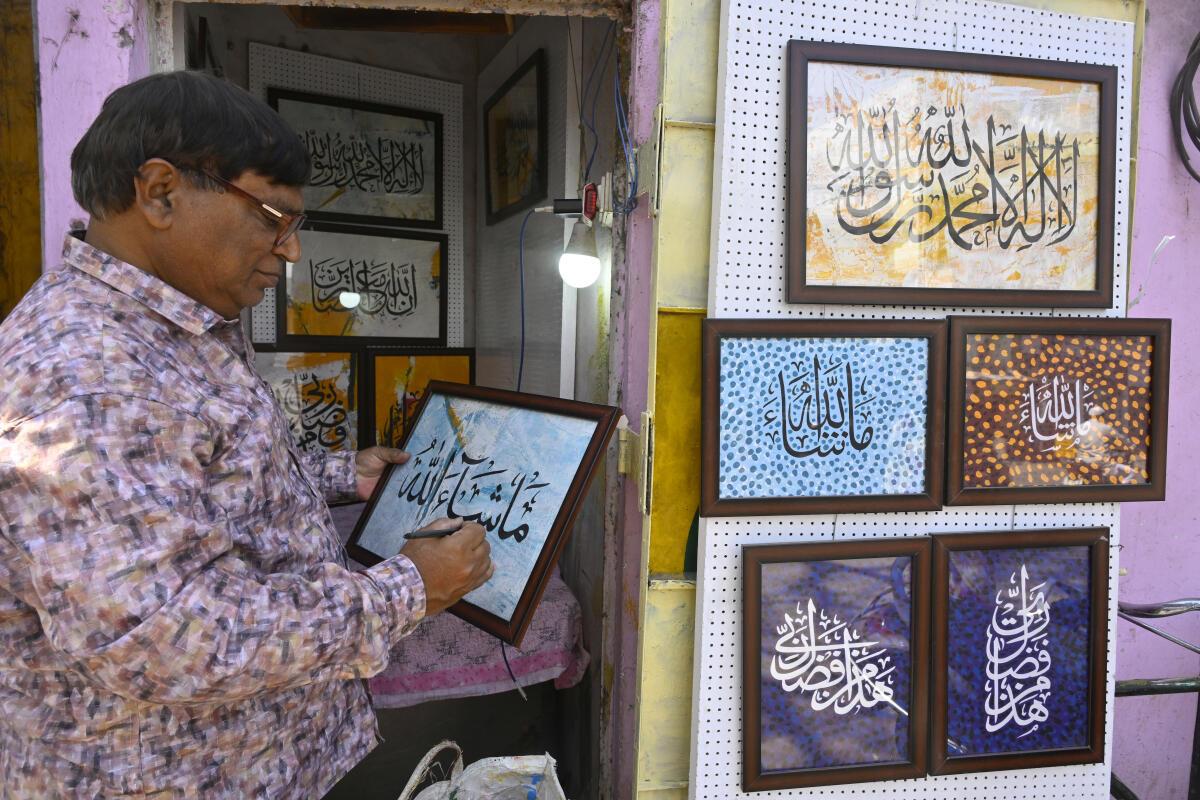 لا إله إلا الله محمد رسول الله
إن الله مع الصابرين
هذا من فضل ربي
ما شاء الله
لا إله إلا الله محمد رسول الله
ما شاء الله
ما شاء الله
هذا من فضل ربي
هذا من فضل ربي